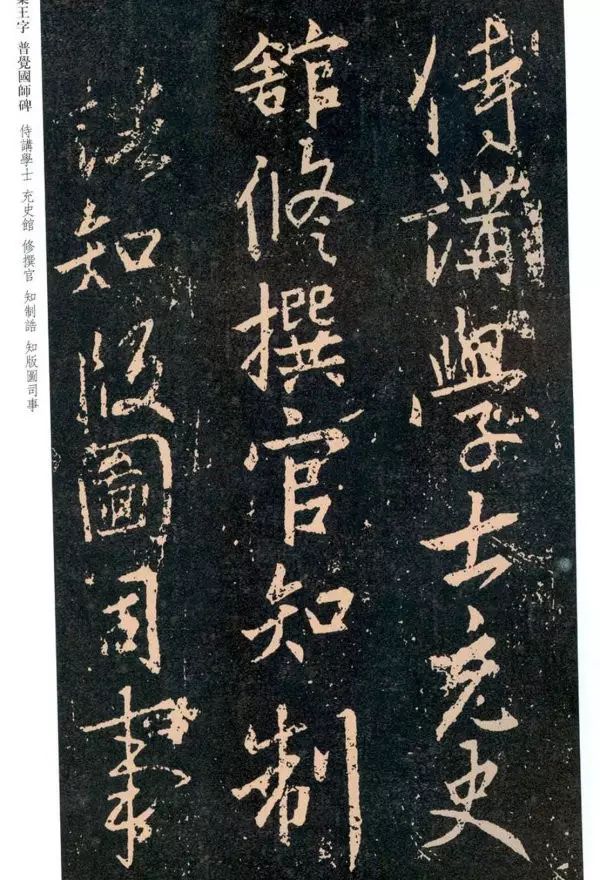 侍講學士充史
舘修撰官知制
誥知版圖司事
集王字 普覺國師碑 侍講學士 充史館 修撰官 知制誥 知版圖司事